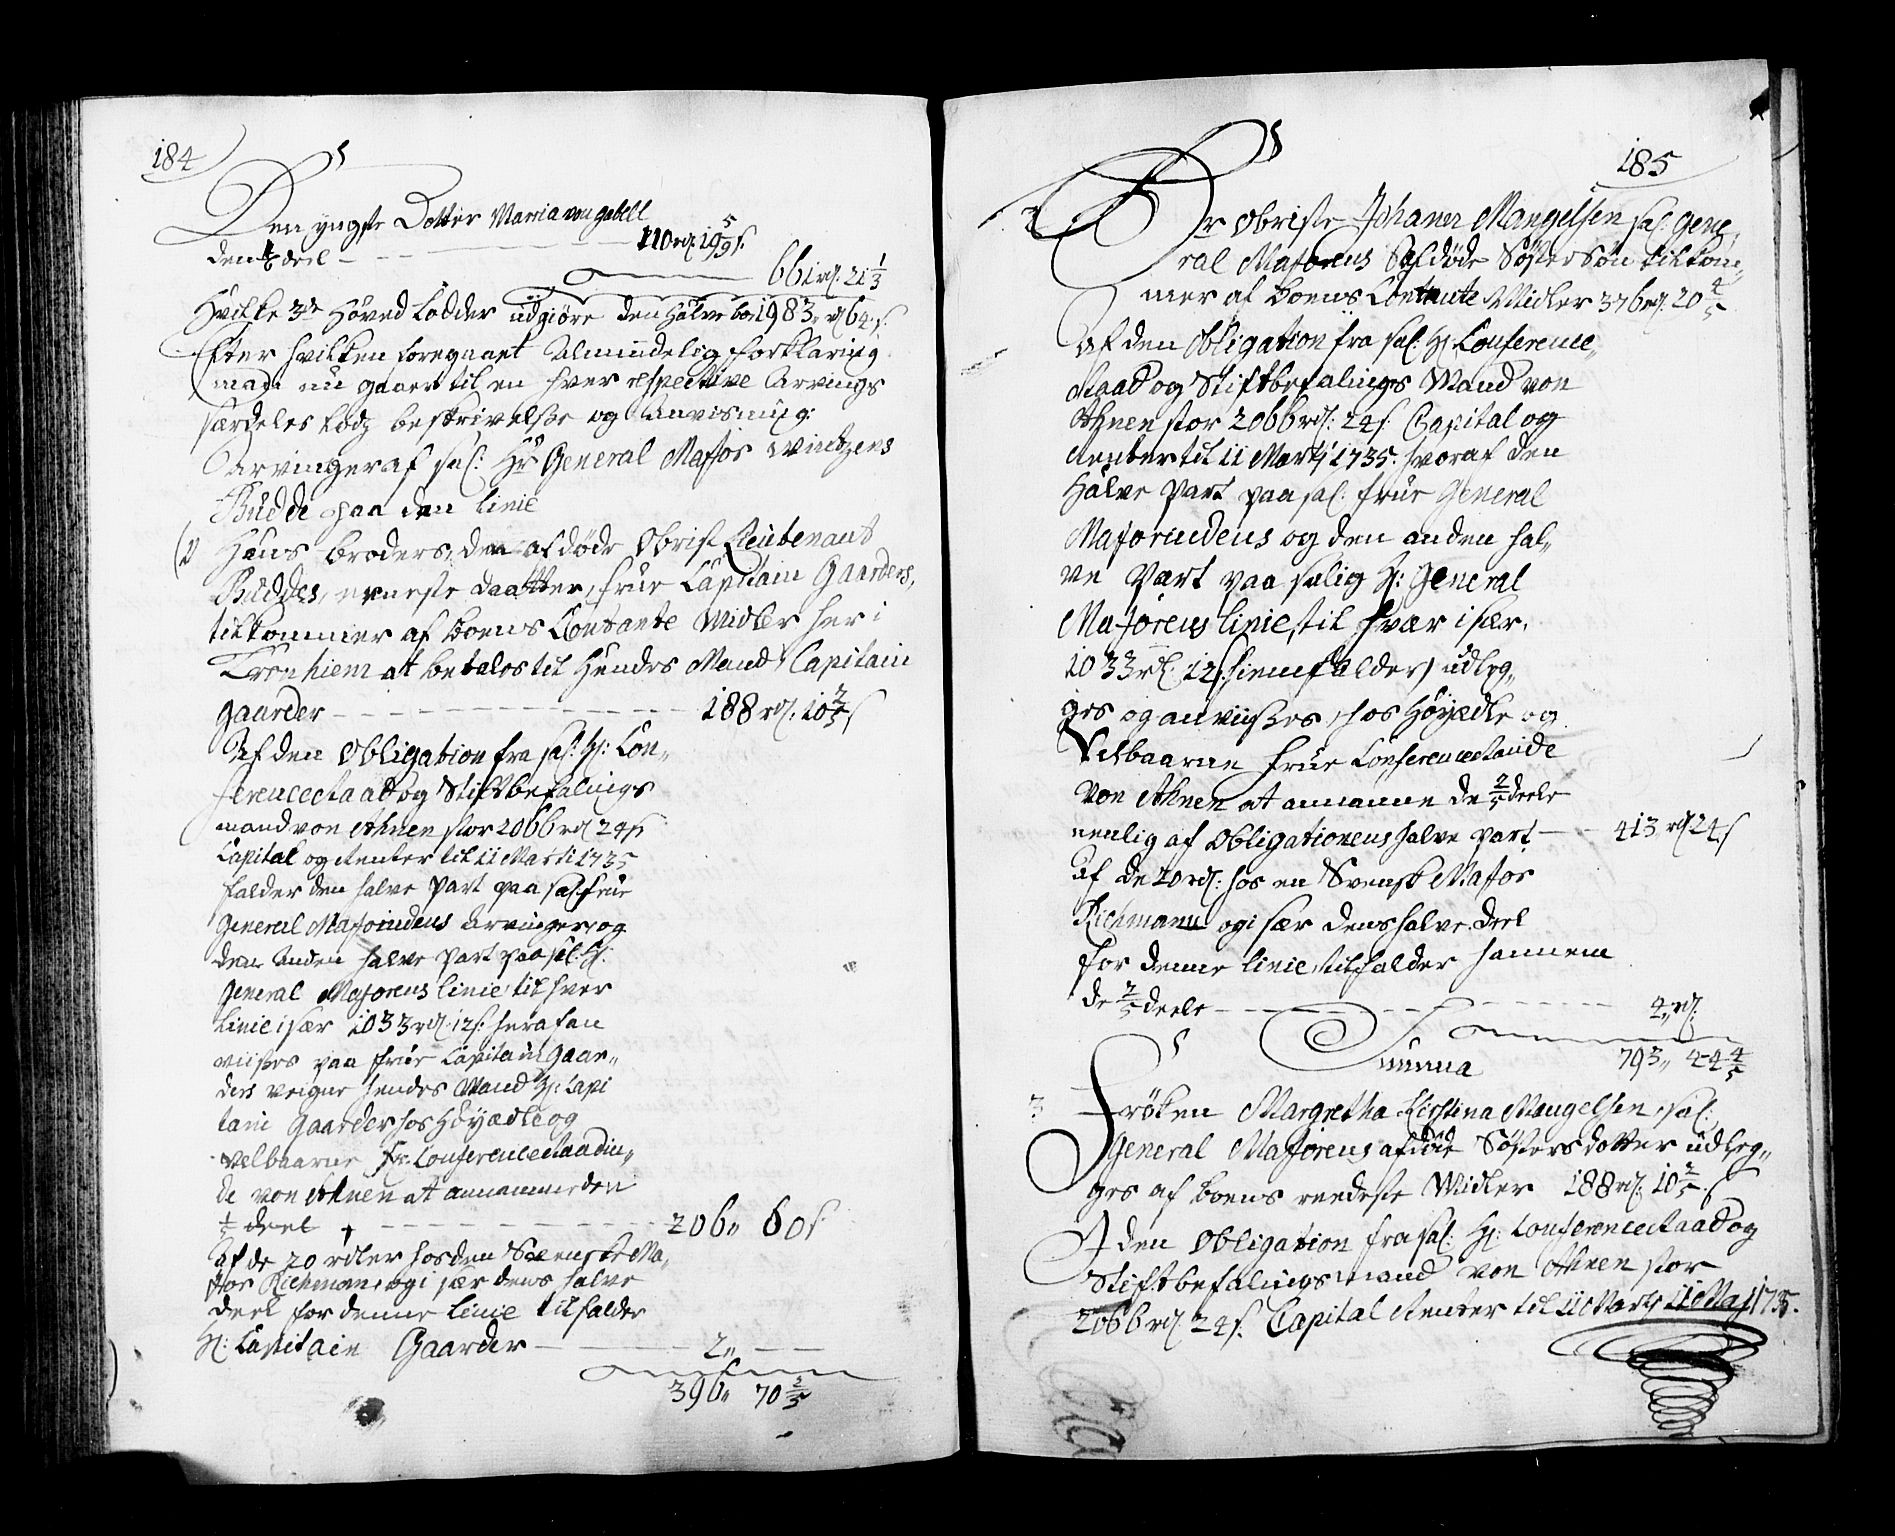 184
Den yngste Dotter Maria von gabell
den 1/6 deel — 110 rd. 19 5/9 s.
661 rd. 21 1/3
Hvilke 3de Hoved Lodder udgiøre den Halve boe 1983 rd 64 s.
Efter hvilken foregaaet Almindelig forklaring
mand nu gaaer til en hver respective Arvings
særdeles Lodz beskrivelse og Anvisning:
Arvinger af sal: Hr General Major Wintzens
Budde paa den Linie
1) Hans broders, den afdøde Obrist Lieutenant
Buddes, eeneste daatter, frue Capitain Gaarders,
tilkommer af boens Contante Midler her i
Tronhiem at betales til Hendes Mand Capitain
gaarder — 188 rd. 10 2/5 s
Af den Obligation fra sal: Hr: Con-
ferenceRaad og Stiftbefalings
mand von Ahnen stor 2066 rd 24 s
Capital og Renter til 11 Marti 1735
falder den halve part paa sal: frue
General Majorindens Arvinger, og
den Anden halve part paa sal: Hr:
General Majorens Linie, til hver
Linie især 1033 rd. 12 s: heraf an
viises paa frue Capitain Gaar-
ders veigne hendes Mand Hr: Capi
tain Gaarder hos Høyædle og
Velbaarne Fr: ConferenceRaadin-
de von Ahnen at annamme den
1/5 deel — 206„ 60 s
Af de 20 rdler hos den Svenske Ma-
jor Richman, og i sær dens halve
deel for denne Linie tilfalder
Hr: Capitain Gaarder — 2„
396„ 70 2/5
185
2 Hr Obriste Johann Mangelsen sal: Gene-
ral Majorens Afdøde Søster Søn tilkom-
mer af boens Contante Midler 376 rd. 20 4/5
Af den Obligation fra sal: Hr Conference-
Raad og Stiftbefalings Mand von
Ahnen stor 2066 rd: 24 s: Capital og
Renter til 11 Marty 1735. hvoraf den
Halve Part paa sal: frue General
Majorindens og den anden hal-
ve Part paa salig Hr: General
Majorens Linie, til hver især,
1033 rd. 12 s. hiemfalder, udleg-
ges og anviises, hos Høyædle og
Velbaarne Frue ConferenceRaadinde
von Ahnen at annamme de 2/5 deele
nemlig af Obligationens halve part — 413 rd 24 s
Af de 20 rd: hos en Svensk Major
Richmann og i sær dens halve deel
for denne Linie, tilfalder hannem
de 2/5 deele — 4„ rd:
Summa 793„ 44 4/5
3 Frøken Margretha Kirstina Mangelsen, sal:
General Majorens afdøde Søsters dotter udleg-
ges af boens reedeste Midler 188 rd. 10 2/5 s
I den Obligation fra sal: Hr: ConferenceRaad og
Stiftbefalingsmand von Ahnen stor
2066 rd. 24 s. Capital Renter til 11 Marty 11 May 1735.